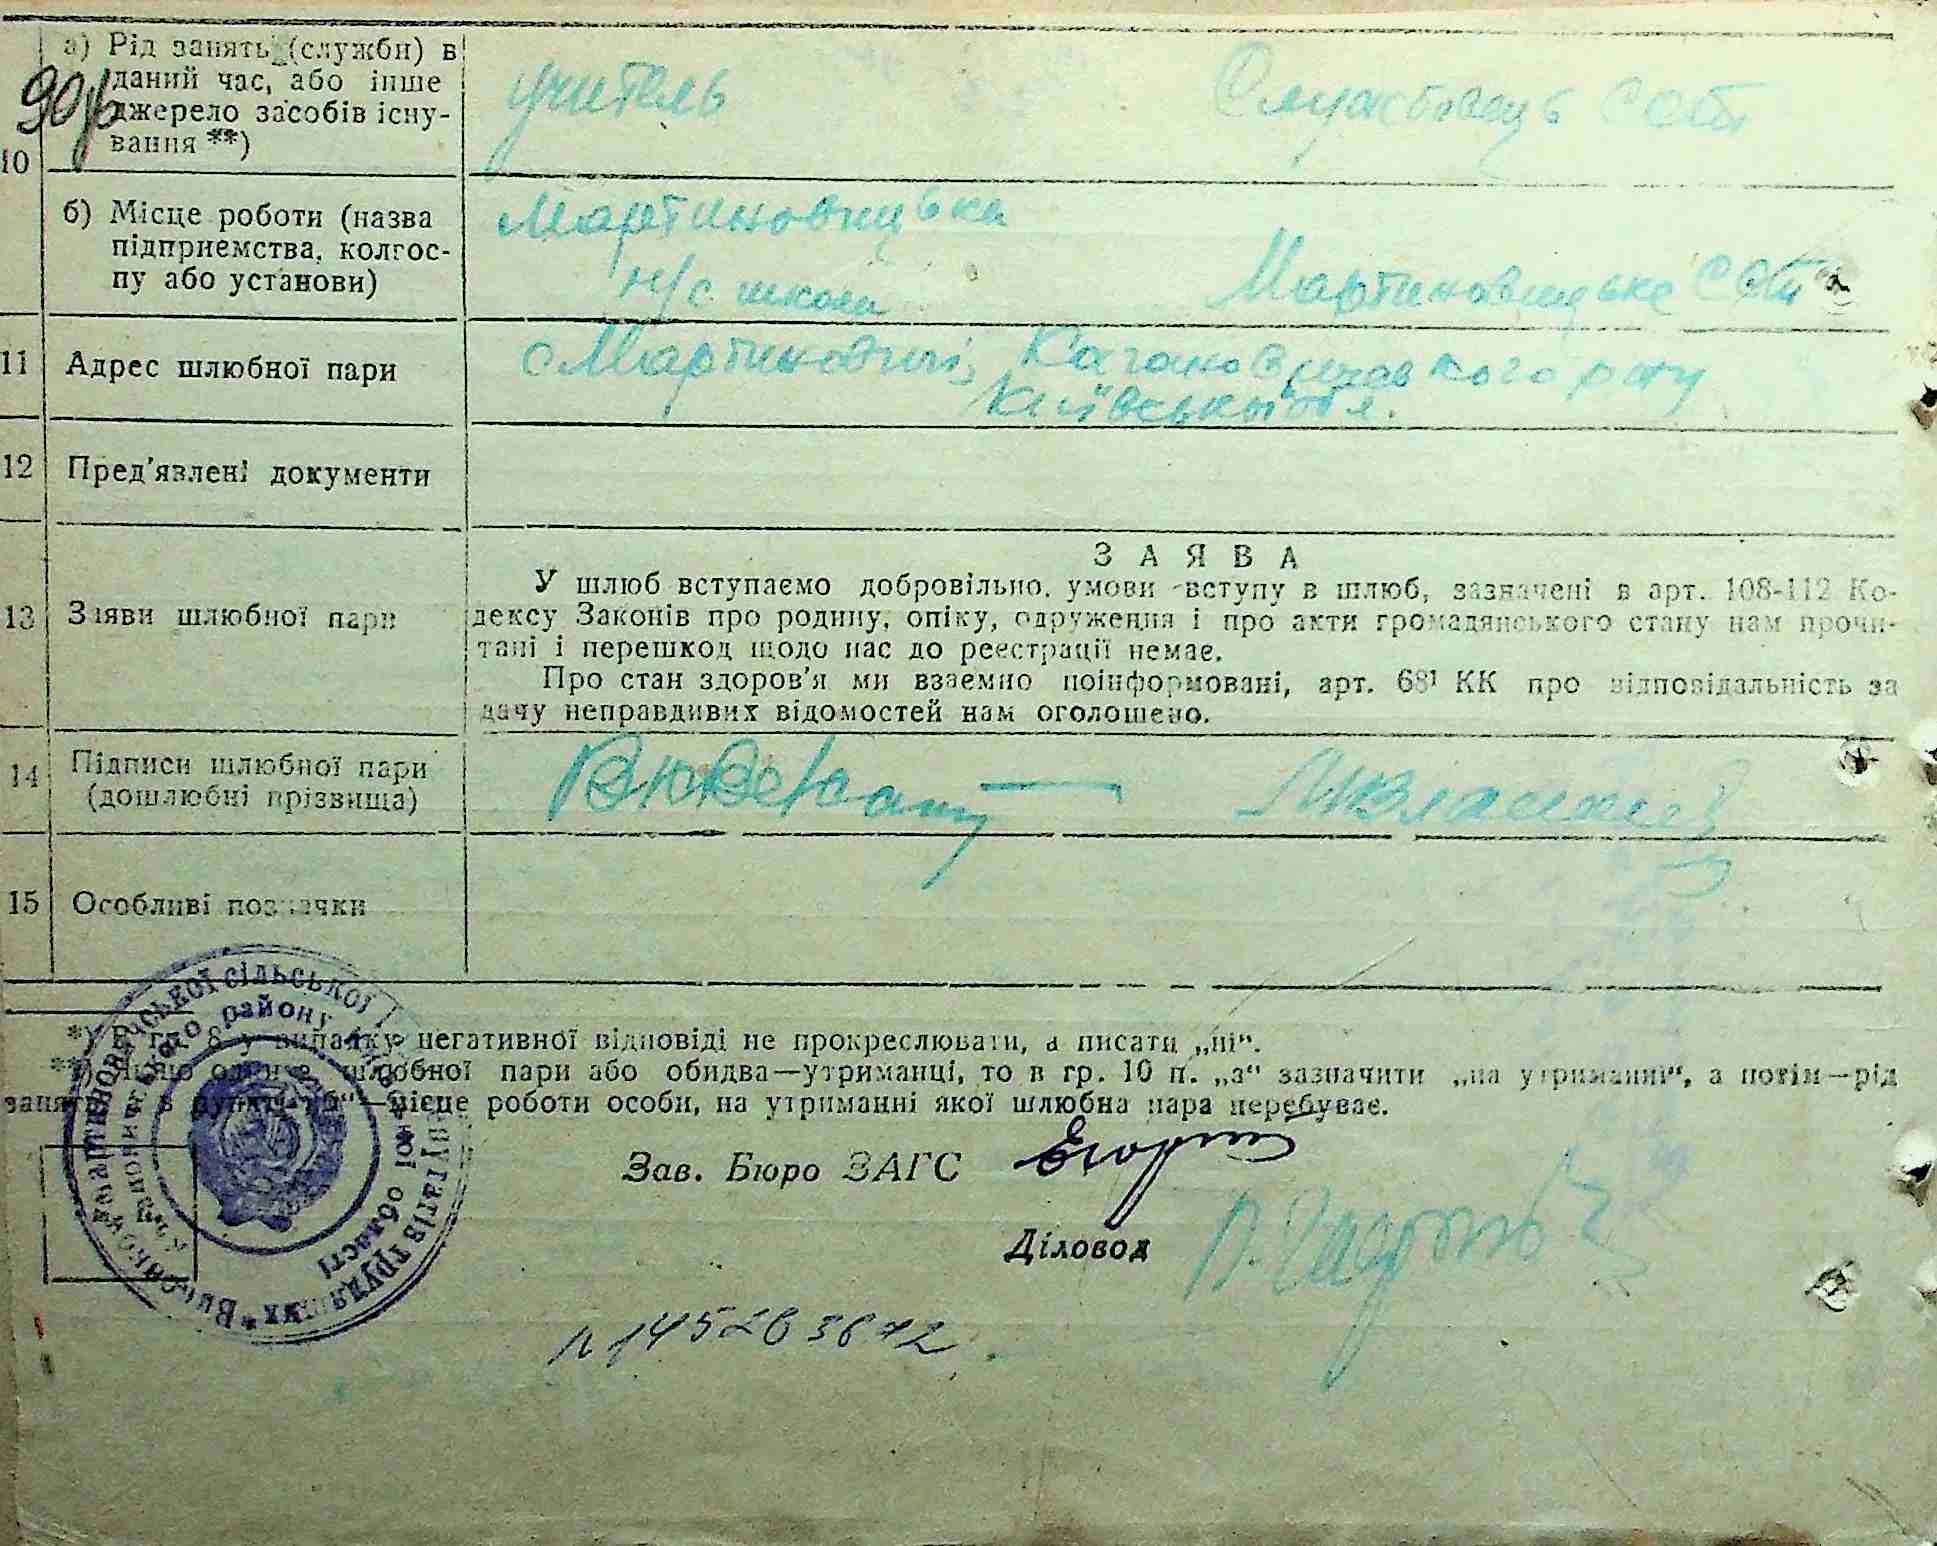 10
90
а) Рід занять (служби) в
даний час, або інше
джерело засобів існу-
вання **)
учитель
Службовець ССТ
б) Місце роботи (назва
підприємства, колгос-
пу або установи)
Мартиновицька
н/с школа
Мартиновицьке ССТ
11 Адрес шлюбної пари
с Мартиновичі, Кагановицького р-ну
Київської обл.
12 Пред'явлені документи
13 Заяви шлюбної пари
ЗАЯВА
У шлюб вступаємо добровільно, умови вступу в шлюб, зазначені в арт. 108-112 Ко-
дексу Законів про родину, опіку, одруження і про акти громадянського стану нам прочи-
тані і перешкод щодо нас до реєстрації немає.
Про стан здоров'я ми взаємно поінформовані, арт. 68¹ КК про відповідальність за
дачу неправдивих відомостей нам оголошено.
14 Підписи шлюбної пари
(дошлюбні прізвища)
15 Особливі позначки
*) В гр. 8 у випадку негативної відповіді не прокреслювати, а писати „ні“.
**) Якщо один з шлюбної пари або обидва—утриманці, то в гр. 10 п. „а“ зазначити „на утриманні“, а потім—рід
занять, а в пункті „б“—місце роботи особи, на утриманні якої шлюбна пара перебуває.
Зав. Бюро ЗАГС
Діловод
Мартиновицької сільської Ради депутатів трудящих * Виконком
Кагановицького району Київської області